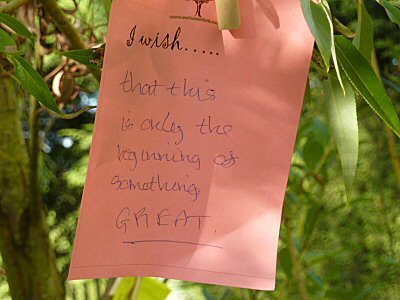 I wish.....
that this
is only the
beginning of
something
GREAT.